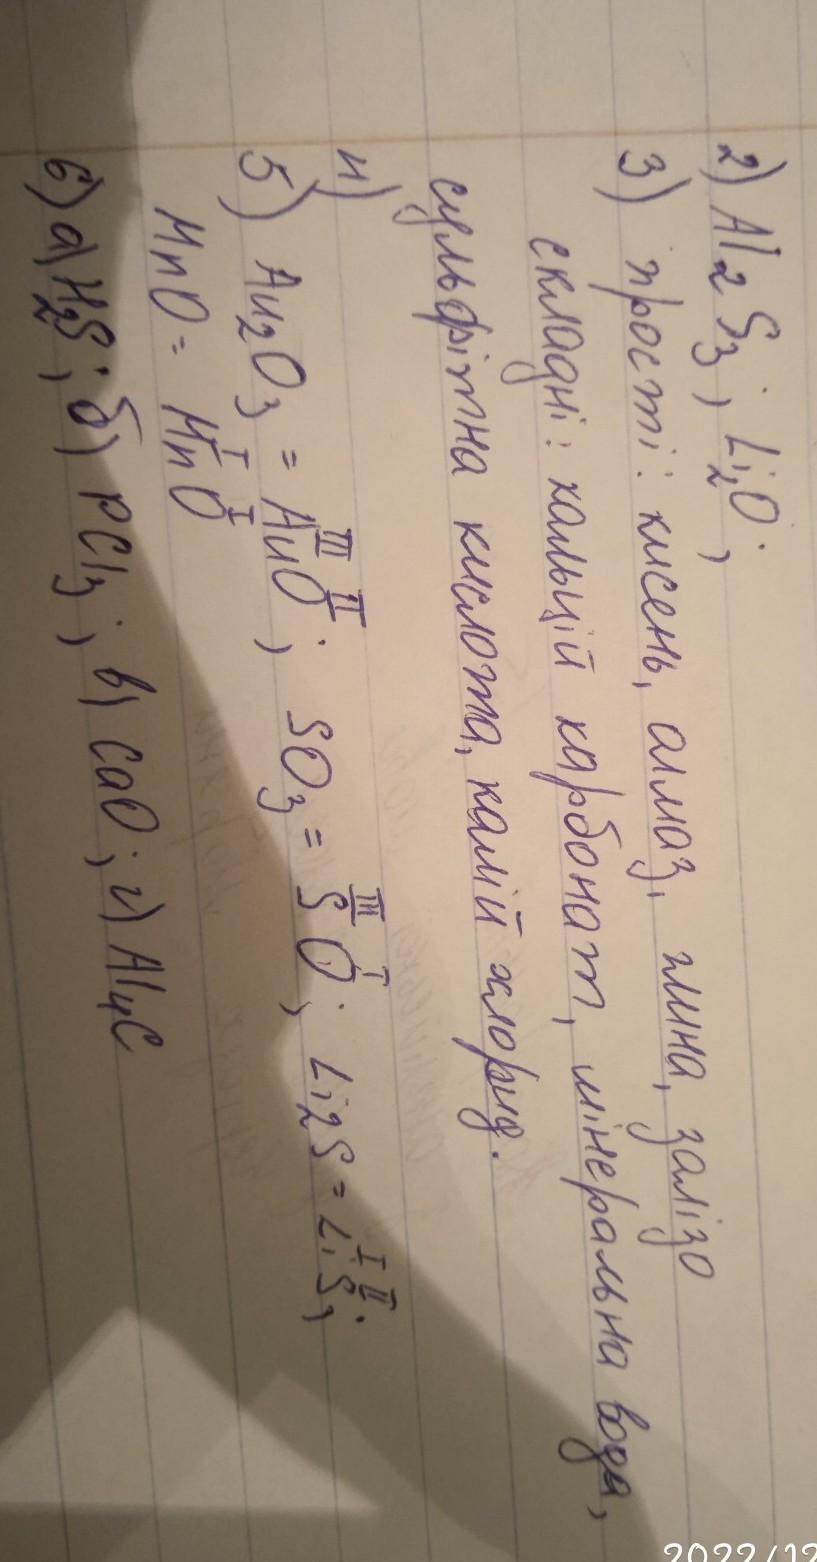 2) Al2S3; Li2O;
3) прості: кисень, алмаз, глина, залізо
складні: кальцій карбонат, мінеральна вода,
сульфітна кислота, калій хлорид.
4)
5) Au2O3 = Au^III O^II; SO3 = S^III O^I; Li2S = Li^I S^II;
MnO = Mn^I O^I
6) а) H2S; б) PCl3; в) CaO; г) Al4C
2022/12